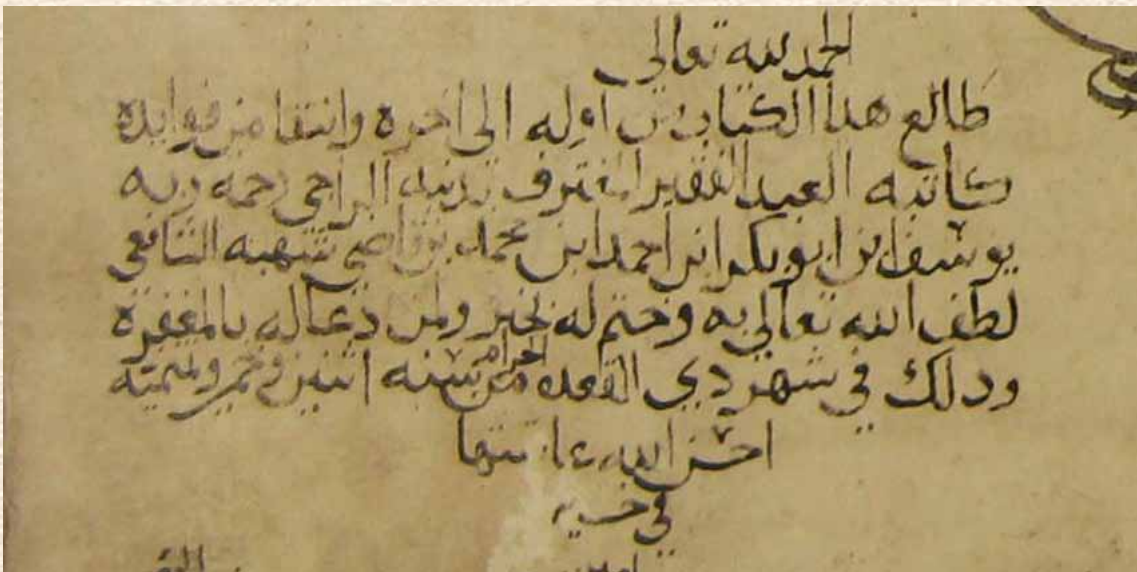 الحمد لله تعالى
طالع هذا الكتاب من أوله الى اخره وانتقا من فوايده
كاتبه العبد الفقير المعترف بذنبه الراجي رحمه ربه
يوسف ابن ابو بكر ابن احمد ابن محمد بن قاضي شهبه الشافعي
لطف الله تعالى به وختم له بخير ولمن دعا له بالمغفرة
ودلك في شهر دي القعده الحرام من سنه اثنين وخمس وثمنميه
احسن الله عاقبتها
في خير
امين